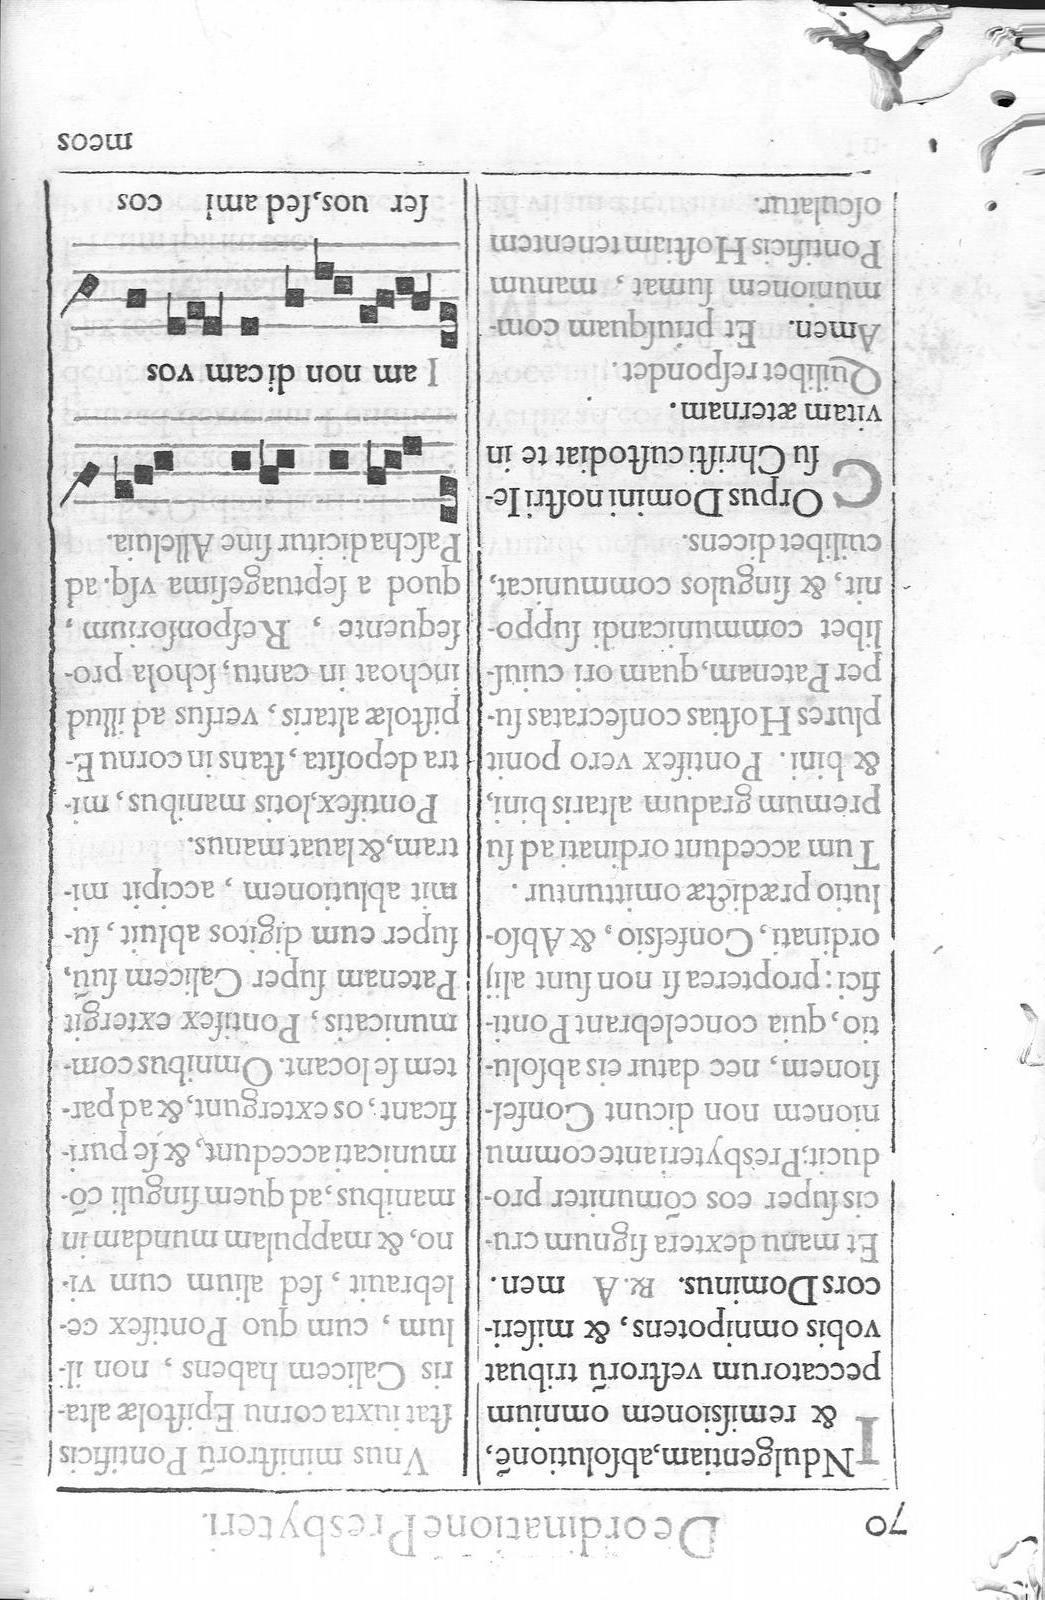 70
De ordinatione Presbyteri.
INdulgentiam, abſolutionē,
& remiſsionem omnium
peccatorum veſtrorū tribuat
vobis omnipotens, & miſeri-
cors Dominus. ℟. A men.
Et manu dextera ſignum cru-
cis ſuper eos cōmuniter pro-
ducit, Presbyteri ante commu
nionem non dicunt Confeſ-
ſionem, nec datur eis abſolu-
tio, quia concelebrant Ponti-
fici: propterea ſi non ſunt alij
ordinati, Confeſsio, & Abſo-
lutio prædictæ omittuntur.
Tum accedunt ordinati ad ſu
premum gradum altaris bini,
& bini. Pontifex vero ponit
plures Hoſtias conſecratas ſu-
per Patenam, quam ori cuiuſ-
libet communicandi ſuppo-
nit, & ſingulos communicat,
cuilibet dicens.
COrpus Domini noſtri Ie-
ſu Chriſti cuſtodiat te in
vitam æternam.
Quilibet reſpondet.
Amen. Et priuſquam com-
munionem ſumat, manum
Pontificis Hoſtiam tenentem
oſculatur.
Vnus miniſtrorū Pontificis
ſtat iuxta cornu Epiſtolæ alta-
ris Calicem habens, non il-
lum, cum quo Pontifex ce-
lebrauit, ſed alium cum vi-
no, & mappulam mundam in
manibus, ad quem ſinguli cō-
municati accedunt, & ſe puri-
ficant, os extergunt, & ad par-
tem ſe locant. Omnibus com-
municatis, Pontifex extergit
Patenam ſuper Calicem ſuū,
ſuper eum digitos abluit, ſu-
mit ablutionem, accipit mi-
tram, & lauat manus.
Pontifex, lotis manibus, mi-
tra depoſita, ſtans in cornu E-
piſtolæ altaris, verſus ad illud
inchoat in cantu, ſchola pro-
ſequente, Reſponſorium,
quod a ſeptuageſima vſq. ad
Paſcha dicitur ſine Alleluia.
I am non dicam vos
ſer uos, ſed ami cos
meos